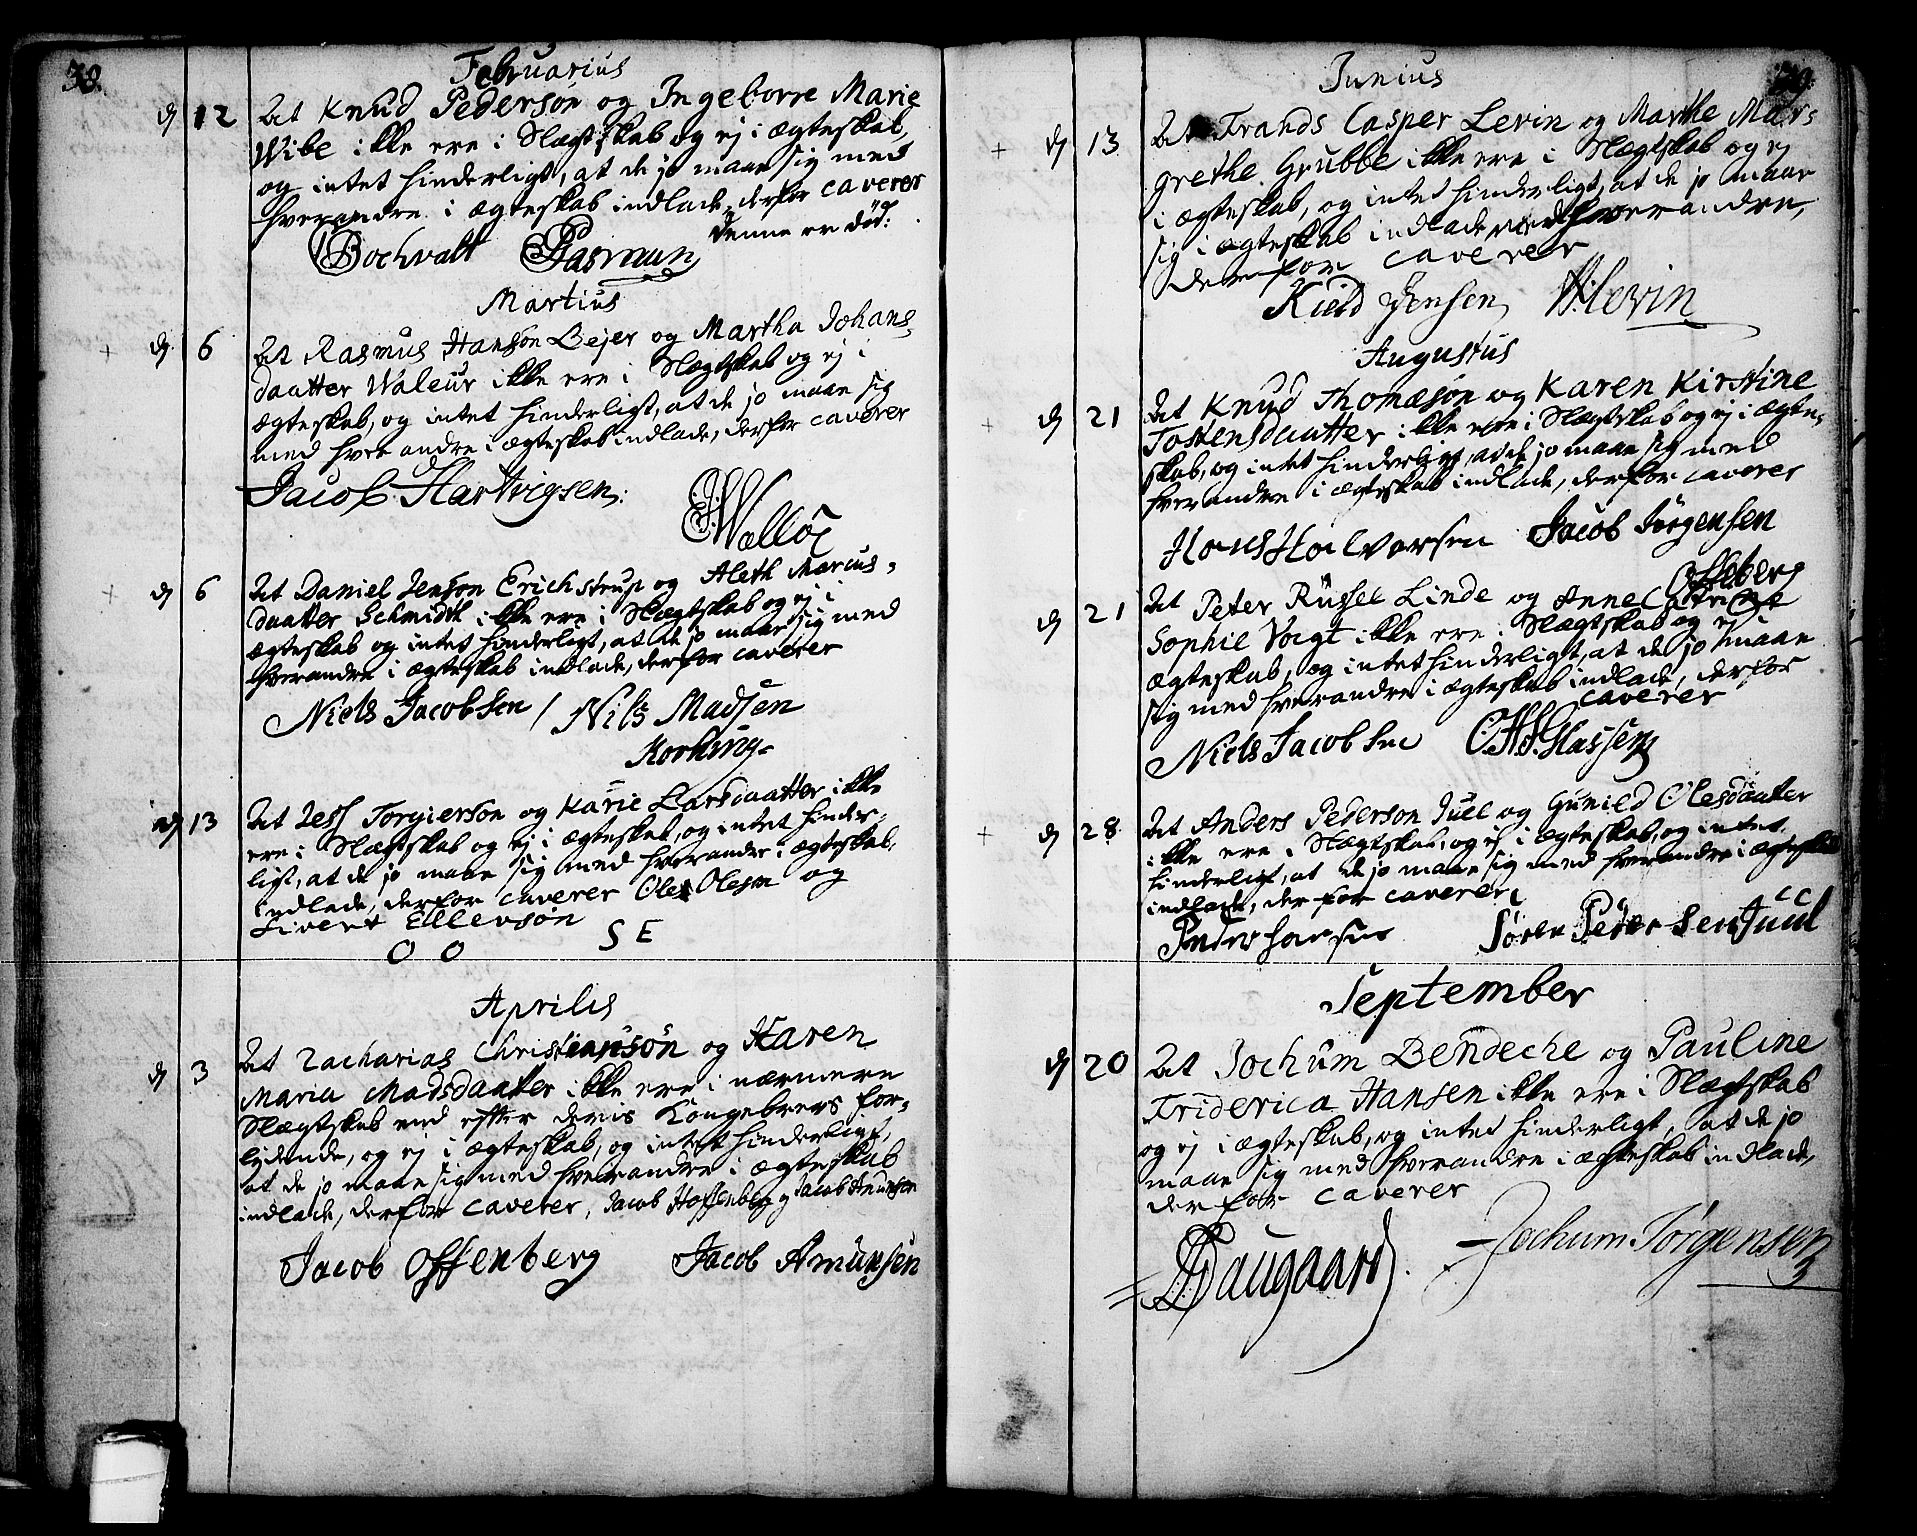 38.
Februarius
d 12 At Knud Pedersøn og Ingeborre Marie
Wibe ikke ere i Slægtskab og ej i ægteskab,
og intet hinderligt, at de jo maae sig med
hverandre i ægteskab indlade, derfor caverer
denne er død.
Bochvalt Rasmun
Martius
+ d 6 At Rasmus Hansøn Bejer og Martha Johans-
daatter Waleur ikke ere i Slægtskab og ej i
ægteskab, og intet hinderligt, at de jo maae sig
med hverandre i ægteskab indlade, derfor caverer
Jacob Hartvigsen
Walløe
+ d 6 At Daniel Jensøn Erichstrup og Aleth Marcus-
daatter Schmidth ikke ere i Slægtskab og ej i
ægteskab og intet hinderligt, at de jo maae sig med
hverandre i ægteskab indlade, derfor caverer
Niels Jacobsen / Nils Madsen
Korhing
d 13 At Jess Torgiersøn og Karie Larsdaatter ikke
ere i Slægtskab og ej i ægteskab, og intet hinder-
ligt, at de jo maae sig med hverandre i ægteskab
indlade, derfor caverer Ole Olesøn og
Sivert Ellevsøn
O O S E
Aprilis
d 3 At Zacharias Christiansøn og Karen
Maria Madsdaatter ikke ere i nærmere
Slægtskab end efter deris Kongebrevs for-
lydende, og ej i ægteskab, og intet hinderligt,
at de jo maae sig med hverandre i ægteskab
indlade, derfor caverer, Jacob Hoffenberg og Jacob Amunsøn
Jacob Offenberg Jacob Amunsen
39.
Junius
+ d 13 At Frands Casper Levin og Marthe Mar-
grethe Grubbe ikke ere i Slægtskab og ej
i ægteskab, og intet hinderligt, at de jo maae
sig i ægteskab indlade med hverandre,
derfor caverer
Kield Jensen H: Levin
Augustus
+ d 21 At Knud Thomæsøn og Karen Kirstine
Tostensdaatter ikke ere i Slægtskab og ej i ægte-
skab, og intet hinderligt, at de jo maae sig med
hverandre i ægteskab indlade, derfor caverer
Hans Halvorsen Jacob Jørgensen
Offeberg
d 21 At Peter Rüssel Linde og Anne Catrine
Sophie Voigt ikke ere i Slægtskab og ej i
ægteskab, og intet hinderligt, at de jo maae
sig med hverandre i ægteskab indlade, derfor
caverer
Niels Jacobsen Classen
+ d 28 At Anders Pedersøn Juel og Gunild Olesdaatter
ikke ere i Slægtskab, og ej i ægteskab, og intet
hinderligt, at de jo maae sig med hverandre i ægteskab
indlade, derfor caverer
Peder hansen Sören Peder Sen Juul
September
d 20 At Jochum Bendeche og Pauline
Friderica Hansen ikke ere i Slægtskab
og ej i ægteskab, og intet hinderligt, at de jo
maae sig med hverandre i ægteskab indlade,
derfor caverer
Daugaard Jochum Jørgensen